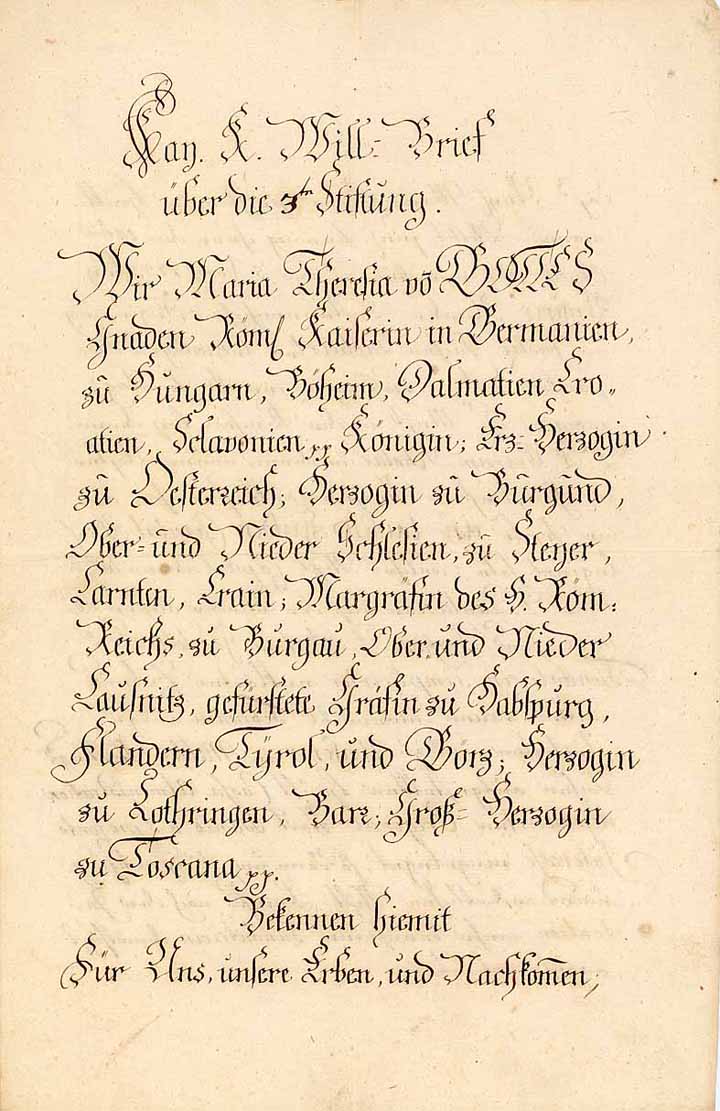 Kay. K. Will- Brief
über die 3te Stiftung.
Wir Maria Theresia võ GOTTES
Gnaden Röml Kaiserin in Germanien,
zu Hungarn, Böheim, Dalmatien Cro„
atien, Sclavonien pp Königin; Erz-Herzogin
zu Oesterreich; Herzogin zu Burgund,
Ober- und Nieder Schlesien, zu Steyer,
Carnten, Crain; Margräfin des H. Röm:
Reichs, zu Burgau, Ober, und Nieder
Lausnitz, gefürstete Gräfin zu Habspurg,
Flandern, Tÿrol, und Görz; Herzogin
zu Lothringen, Barr; Groß- Herzogin
zu Toscana pp.
Bekennen hiemit
Für Uns, unsere Erben, und Nachkom̅en;